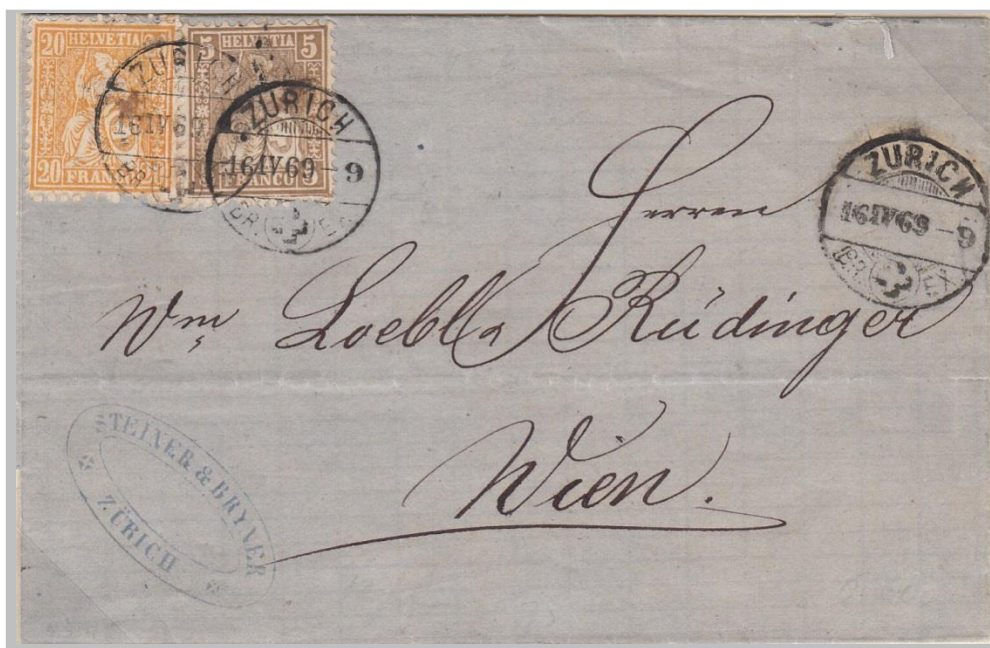 20 HELVETIA
20 FRANCO
5 HELVETIA 5
FRANCO
ZURICH
16 IV 69
ZURICH
16 IV 69 - 9
BR. EX.
ZURICH
16 IV 69 - 9
BR. EX.
Herren
Wm Loebl & Rüdinger
Wien.
STEINER & BRYNER
ZÜRICH